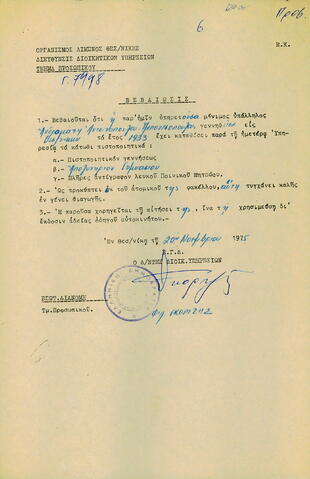 6
Προσ.
Β.Κ.
ΟΡΓΑΝΙΣΜΟΣ ΛΙΜΕΝΟΣ ΘΕΣ/ΝΙΚΗΣ
ΔΙΕΥΘΥΝΣΙΣ ΔΙΟΙΚΗΤΙΚΩΝ ΥΠΗΡΕΣΙΩΝ
ΤΜΗΜΑ ΠΡΟΣΩΠΙΚΟΥ
Β Ε Β Α Ι Ω Σ Ι Σ
1.- Βεβαιοῦται ὅτι ἡ παρ'ἡμῖν ὑπηρετοῦσα μόνιμος ὑπάλληλος
γεννηθεῖσα εἰς
τό ἔτος 1933 ἔχει καταθέσει παρά τῇ ἡμετέρᾳ Ὑπη-
ρεσίᾳ τά κάτωθι πιστοποιητικά :
α.- Πιστοποιητικόν γεννήσεως
β.- Ἀπολυτήριον Γυμνασίου
γ.- Πλῆρες ἀντίγραφον λευκοῦ Ποινικοῦ Μητρώου.
2.- Ὡς προκύπτει ἐκ τοῦ ἀτομικοῦ της φακέλλου, αὕτη τυγχάνει καλῆς
ἐν γένει διαγωγῆς.
3.- Ἡ παροῦσα χορηγεῖται τῇ αἰτήσει της, ἵνα τῇ χρησιμεύσῃ δι'
ἔκδοσιν ἀδείας ὁδηγοῦ αὐτοκινήτου.
Ἐν Θεσ/νίκῃ τῇ 20ῃ Νοεμβρίου 1975
Ε.Γ.Δ.
Ο Δ/ΝΤΗΣ ΔΙΟΙΚ.ΥΠΗΡΕΣΙΩΝ
ΕΣΩΤ.ΔΙΑΝΟΜΗ
Τμ.Προσωπικοῦ.